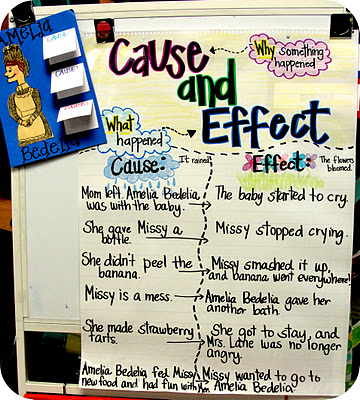 Amelia
CAUSE:
CAUSE:
CAUSE:
Bedelia
Cause
and
Effect
Why something
happened
What
happened
Cause:
It rained.
Effect:
The flowers
bloomed.
Mom left. Amelia Bedelia
was with the baby.
The baby started to cry.
She gave Missy a
bottle.
Missy stopped crying.
She didn't peel the
banana.
Missy smashed it up,
and banana went everywhere!
Missy is a mess.
Amelia Bedelia gave her
another bath.
She made strawberry
tarts.
She got to stay, and
Mrs. Lane was no longer
angry.
Amelia Bedelia fed Missy
new food and had fun with
Missy wanted to go to
Amelia Bedelia.